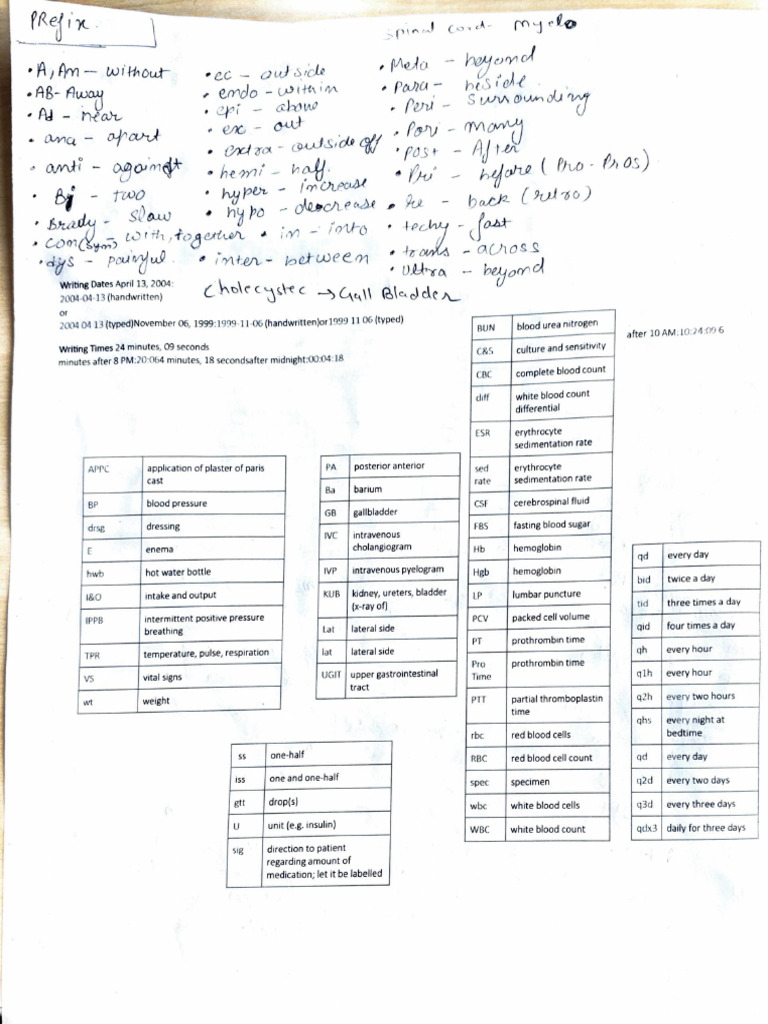 PRefix.
spinal cord- myelo
• A, An - without
• AB- Away
• Ad - near
• ana - apart
• anti - against
• Bi - two
• Brady - slow
• con(sym) - with, together
• dys - painful.
• ec - outside
• endo - within
• epi - above
• ex - out
• extra - outside off
• hemi - half.
• hyper - increase
• hypo - decrease
• in - into
• inter - between
• Meta - beyond
• para - beside
• Peri - surrounding
• Pori - many
• post - After
• Pri - before (Pro-Pros)
• Re - back (retro)
• techy - fast
• trans - across
• ultra - beyond
Cholecystec → Gall Bladder
Writing Dates April 13, 2004:
2004-04-13 (handwritten)
or
2004 04 13 (typed)November 06, 1999:1999-11-06 (handwritten)or1999 11 06 (typed)
Writing Times 24 minutes, 09 seconds
minutes after 8 PM:20:064 minutes, 18 secondsafter midnight:00:04:18
after 10 AM:10:24:09 6
APPC application of plaster of paris
cast
BP blood pressure
drsg dressing
E enema
hwb hot water bottle
I&O intake and output
IPPB intermittent positive pressure
breathing
TPR temperature, pulse, respiration
VS vital signs
wt weight
PA posterior anterior
Ba barium
GB gallbladder
IVC intravenous
cholangiogram
IVP intravenous pyelogram
KUB kidney, ureters, bladder
(x-ray of)
Lat lateral side
lat lateral side
UGIT upper gastrointestinal
tract
BUN blood urea nitrogen
C&S culture and sensitivity
CBC complete blood count
diff white blood count
differential
ESR erythrocyte
sedimentation rate
sed erythrocyte
rate sedimentation rate
CSF cerebrospinal fluid
FBS fasting blood sugar
Hb hemoglobin
Hgb hemoglobin
LP lumbar puncture
PCV packed cell volume
PT prothrombin time
Pro prothrombin time
Time
PTT partial thromboplastin
time
rbc red blood cells
RBC red blood cell count
spec specimen
wbc white blood cells
WBC white blood count
qd every day
bid twice a day
tid three times a day
qid four times a day
qh every hour
q1h every hour
q2h every two hours
qhs every night at
bedtime
qd every day
q2d every two days
q3d every three days
qdx3 daily for three days
ss one-half
iss one and one-half
gtt drop(s)
U unit (e.g. insulin)
sig direction to patient
regarding amount of
medication; let it be labelled